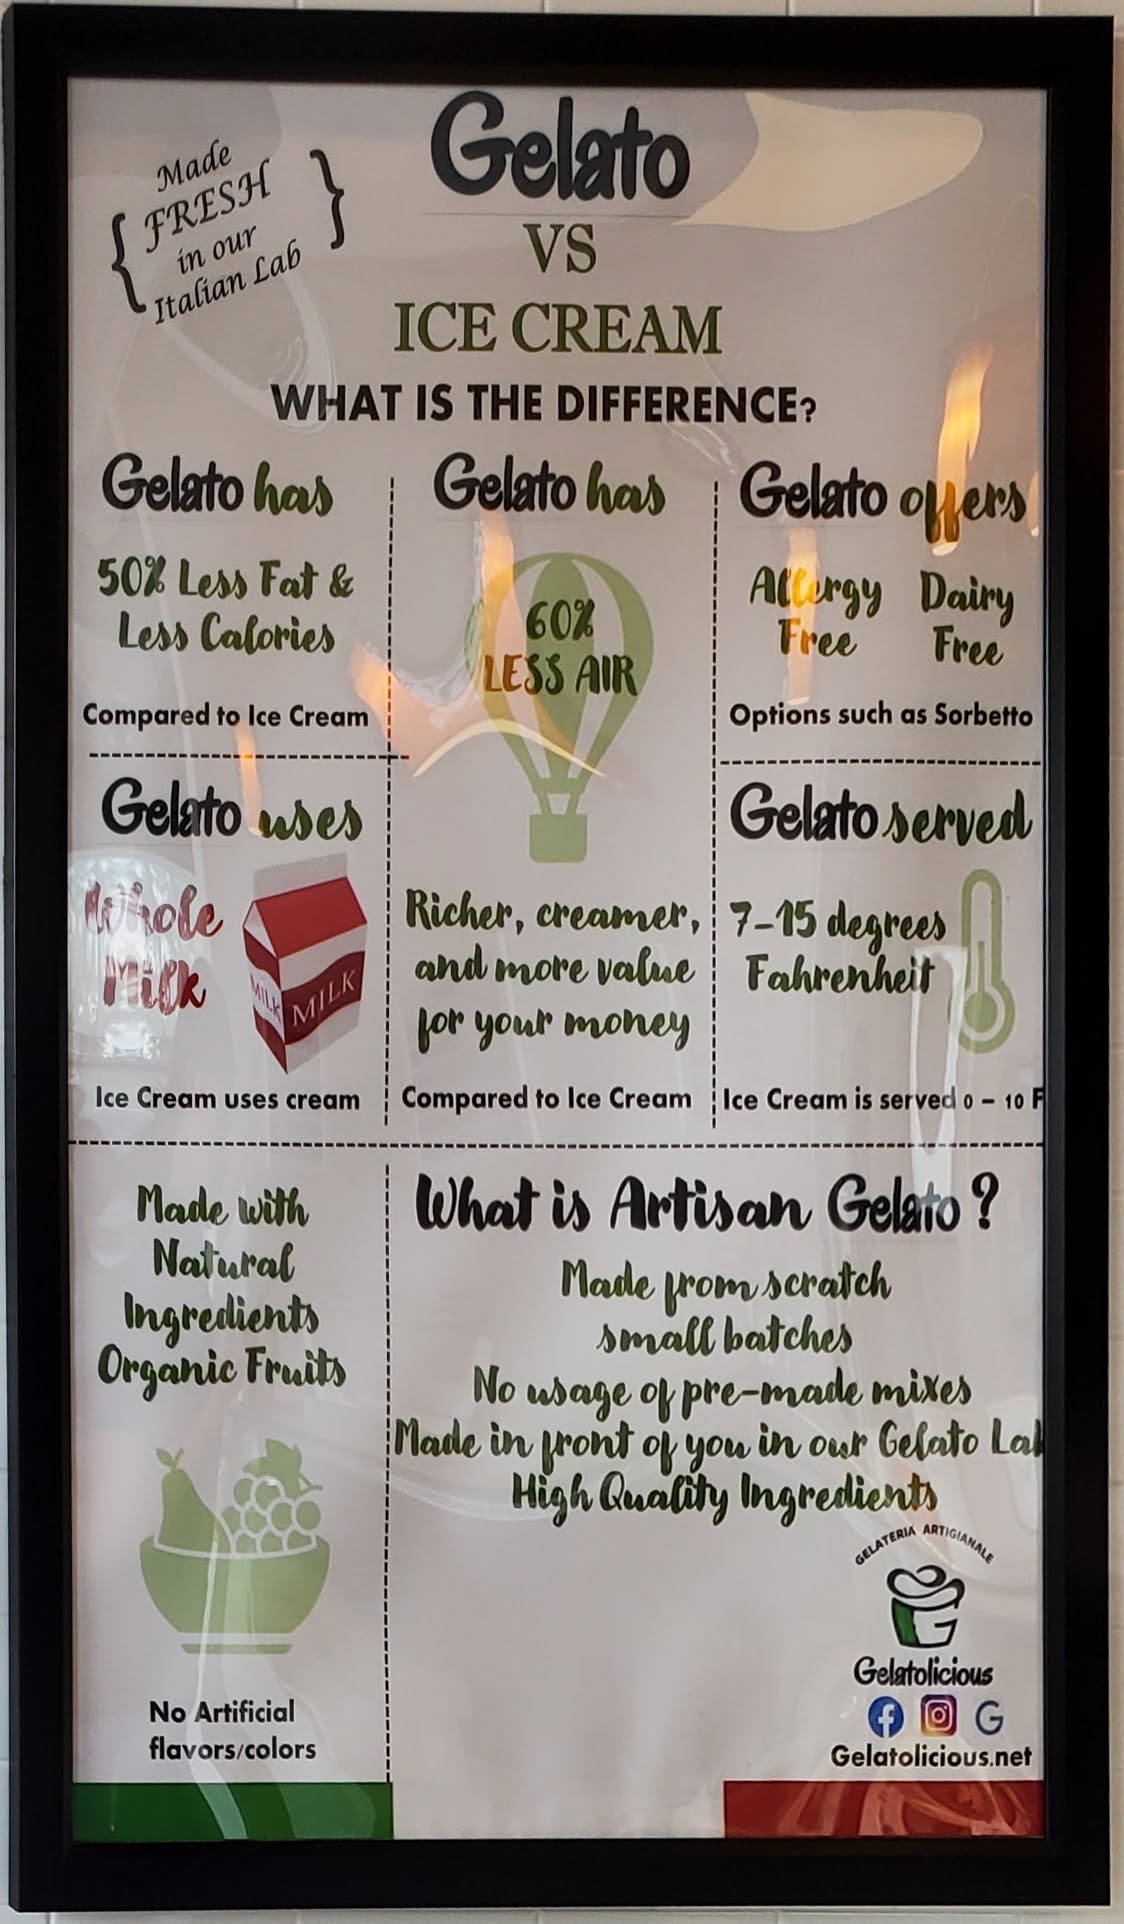 Made
FRESH
in our
Italian Lab
Gelato
VS
ICE CREAM
WHAT IS THE DIFFERENCE?
Gelato has
50% Less Fat &
Less Calories
Compared to Ice Cream
Gelato has
60%
LESS AIR
Richer, creamer,
and more value
for your money
Compared to Ice Cream
Gelato offers
Allergy Free
Dairy Free
Options such as Sorbetto
Gelato uses
Whole
Milk
MILK
MILK
Ice Cream uses cream
Gelato served
7-15 degrees
Fahrenheit
Ice Cream is served 0 - 10 F
Made with
Natural
Ingredients
Organic Fruits
No Artificial
flavors/colors
What is Artisan Gelato?
Made from scratch
small batches
No usage of pre-made mixes
Made in front of you in our Gelato Lab
High Quality Ingredients
GELATERIA ARTIGIANALE
G
Gelatolicious
f G
Gelatolicious.net